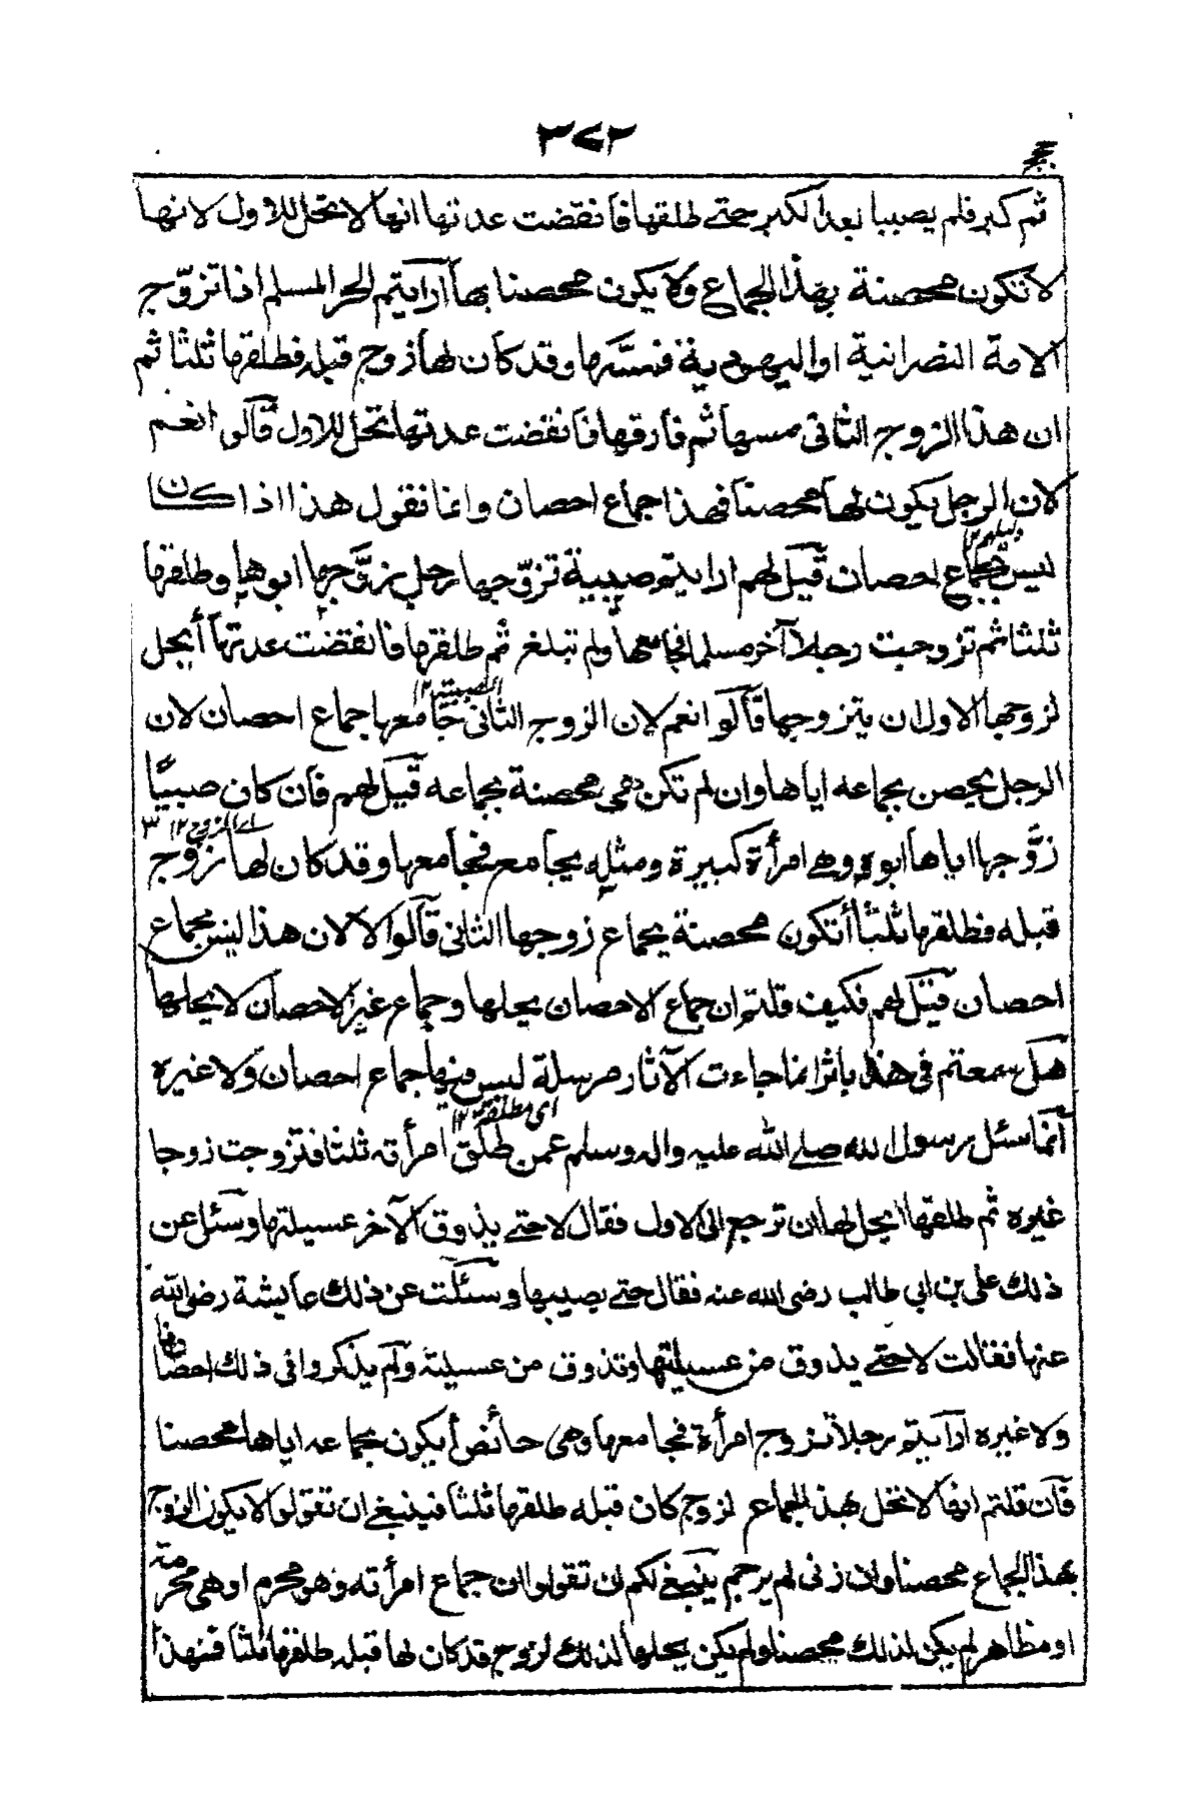 ٣٧٢
ثم كبر فلم يصبها بعد الكبر حتے طلقها فانقضت عدتها انها لا تحل للاول لانها
لا تكون محصنة بهذا الجماع ولا يكون محصنا بها أرايتم الحر المسلم اذا تزوّج
الامة النصرانية او اليهودية فمسّها وقد كان لها زوج قبله فطلقها ثلثا ثم
ان هذا الزوج الثانى مسها ثم فارقها فانقضت عدتها تحل للاول قالوا نعم
لان الرجل يكون لها محصنا فهذا جماع احصان وانما نقول هذا اذا كان
ليس بجماع احصان قيل لهم ارايتم صبية تزوّجها رجل زوّجها ابوها وطلقها
ثلثا ثم تزوجت رجلا آخر مسلما فجامعها ولم تبلغ ثم طلقها فانقضت عدتها أيحل
لزوجها الاول ان يتزوجها قالوا نعم لان الزوج الثانى جامعها جماع احصان لان
الصبية ١٢
الرجل يحصن بجماعه اياها وان لم تكن هى محصنة بجماعه قيل لهم فان كان صبيًّا
زوّجها اياها ابوه وهے امرأة كبيرة ومثله يجامع فجامعها وقد كان لها زوج
اى الزوج ١٢
قبله فطلقها ثلثا أتكون محصنة بجماع زوجها الثانى قالوا لا لان هذا ليس بجماع
احصان قيل لهم فكيف قلتم ان جماع الاحصان يحلها وجماع غير الاحصان لا يحلها
هل سمعتم فى هذا باثر انما جاءت الآثار مرسلة ليس فيها جماع احصان ولا غيره
انما سئل رسول الله صلے الله عليه واله وسلم عمن طلق امرأته ثلثا فتزوجت زوجا
اى مطلقة ١٢
غيره ثم طلقها ايحل لها ان ترجع الى الاول فقال لا حتے يذوق الآخر عسيلتها وسئل عن
ذلك على بن ابى طالب رضى الله عنه فقال حتے يصيبها وسئلت عن ذلك عايشة رضى الله
عنها فقالت لا حتے يذوق من عسيلتها وتذوق من عسيلته ولم يذكروا فى ذلك احصانا
ولا غيره ارايتم رجلا تزوج امرأة فجامعها وهى حائض أيكون بجماعه اياها محصنا
فان قلتم انها لا تحل بهذا الجماع لزوج كان قبله طلقها ثلثا فينبغے ان تقولوا لا يكون الزوج
بهذا الجماع محصنا وان زنى لم يرجم ينبغے لكم ان تقولوا ان جماع امرأته وهو محرم او هى محرمة
او مظاهر لم يكن لذلك محصنا ولم يكن يحلها لذلك لزوج قد كان لها قبله طلقها ثلثا فهذا